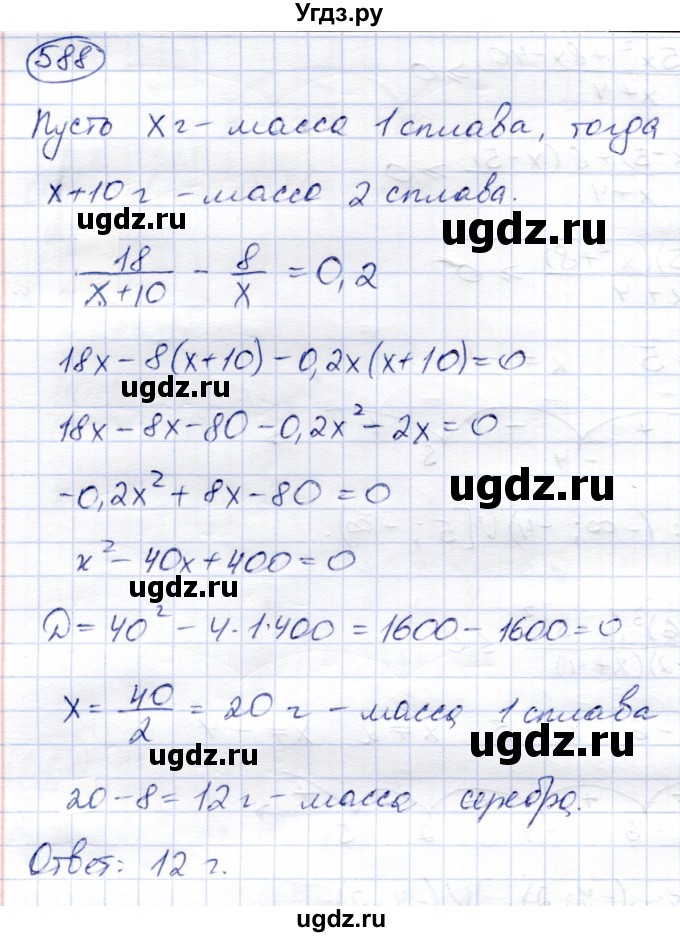 Угдз.ру
588
Пусть x г - масса 1 сплава, тогда
x+10 г - масса 2 сплава.
ugdz.ru
ugdz.ru
18/(x+10) - 8/x = 0,2
18x - 8(x+10) - 0,2x(x+10) = 0
ugdz.ru
18x - 8x - 80 - 0,2x² - 2x = 0
-0,2x² + 8x - 80 = 0
ugdz.ru
x² - 40x + 400 = 0
ugdz.ru
D = 40² - 4·1·400 = 1600 - 1600 = 0
x = 40/2 = 20 г - масса 1 сплава
ugdz.ru
ugdz.ru
20 - 8 = 12 г - масса серебра.
Ответ: 12 г.
ugdz.ru